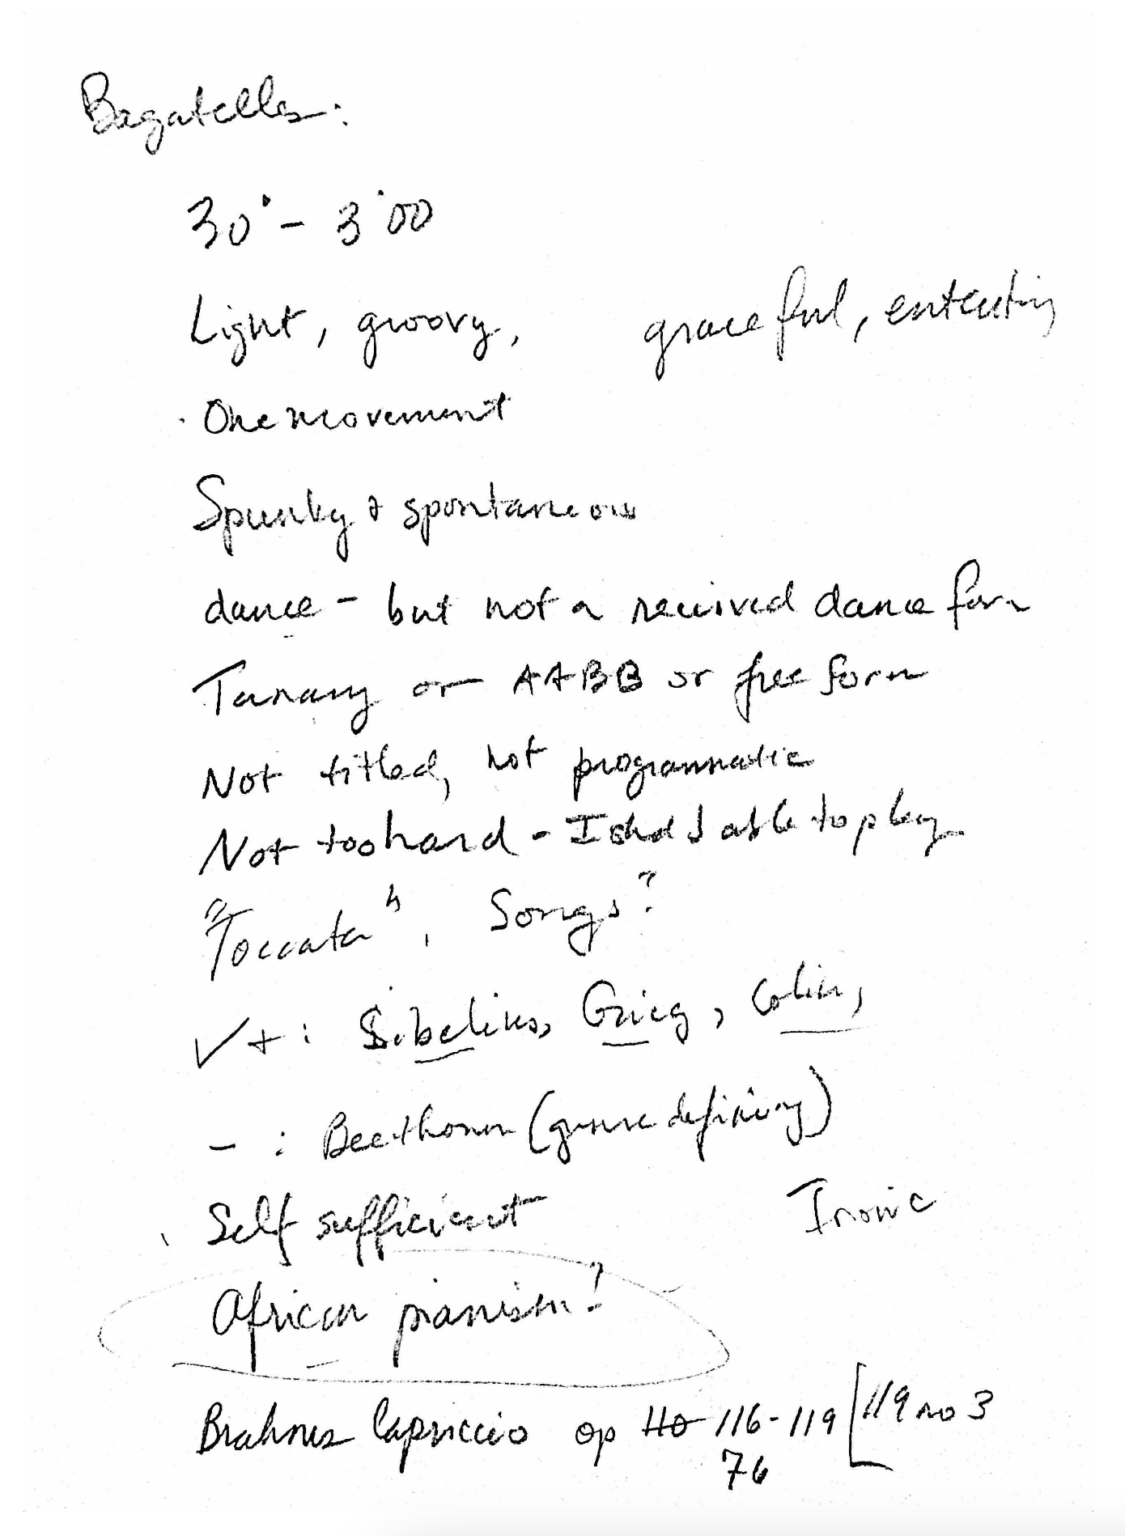 Bagatelles:
30" - 3'00
Light, groovy, graceful, entertaining
· One movement
Spunky & spontaneous
dance - but not a received dance form
Ternary or AABB or free form
Not titled, not programmatic
Not too hard - I able to play
"Toccata", Songs?
✓+: Sibelius, Grieg, Colin,
- : Beethoven (genre defining)
Self sufficient Ironic
African pianism?
Brahms Capriccio op 110 116-119 [119 no 3
76